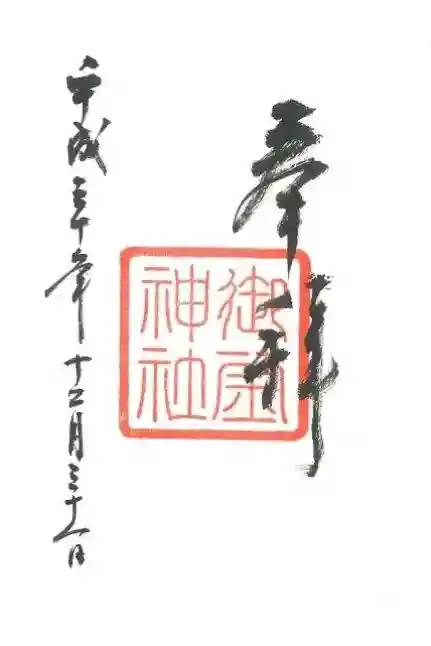 奉拝
御金
神社
平成三十年十二月三十一日